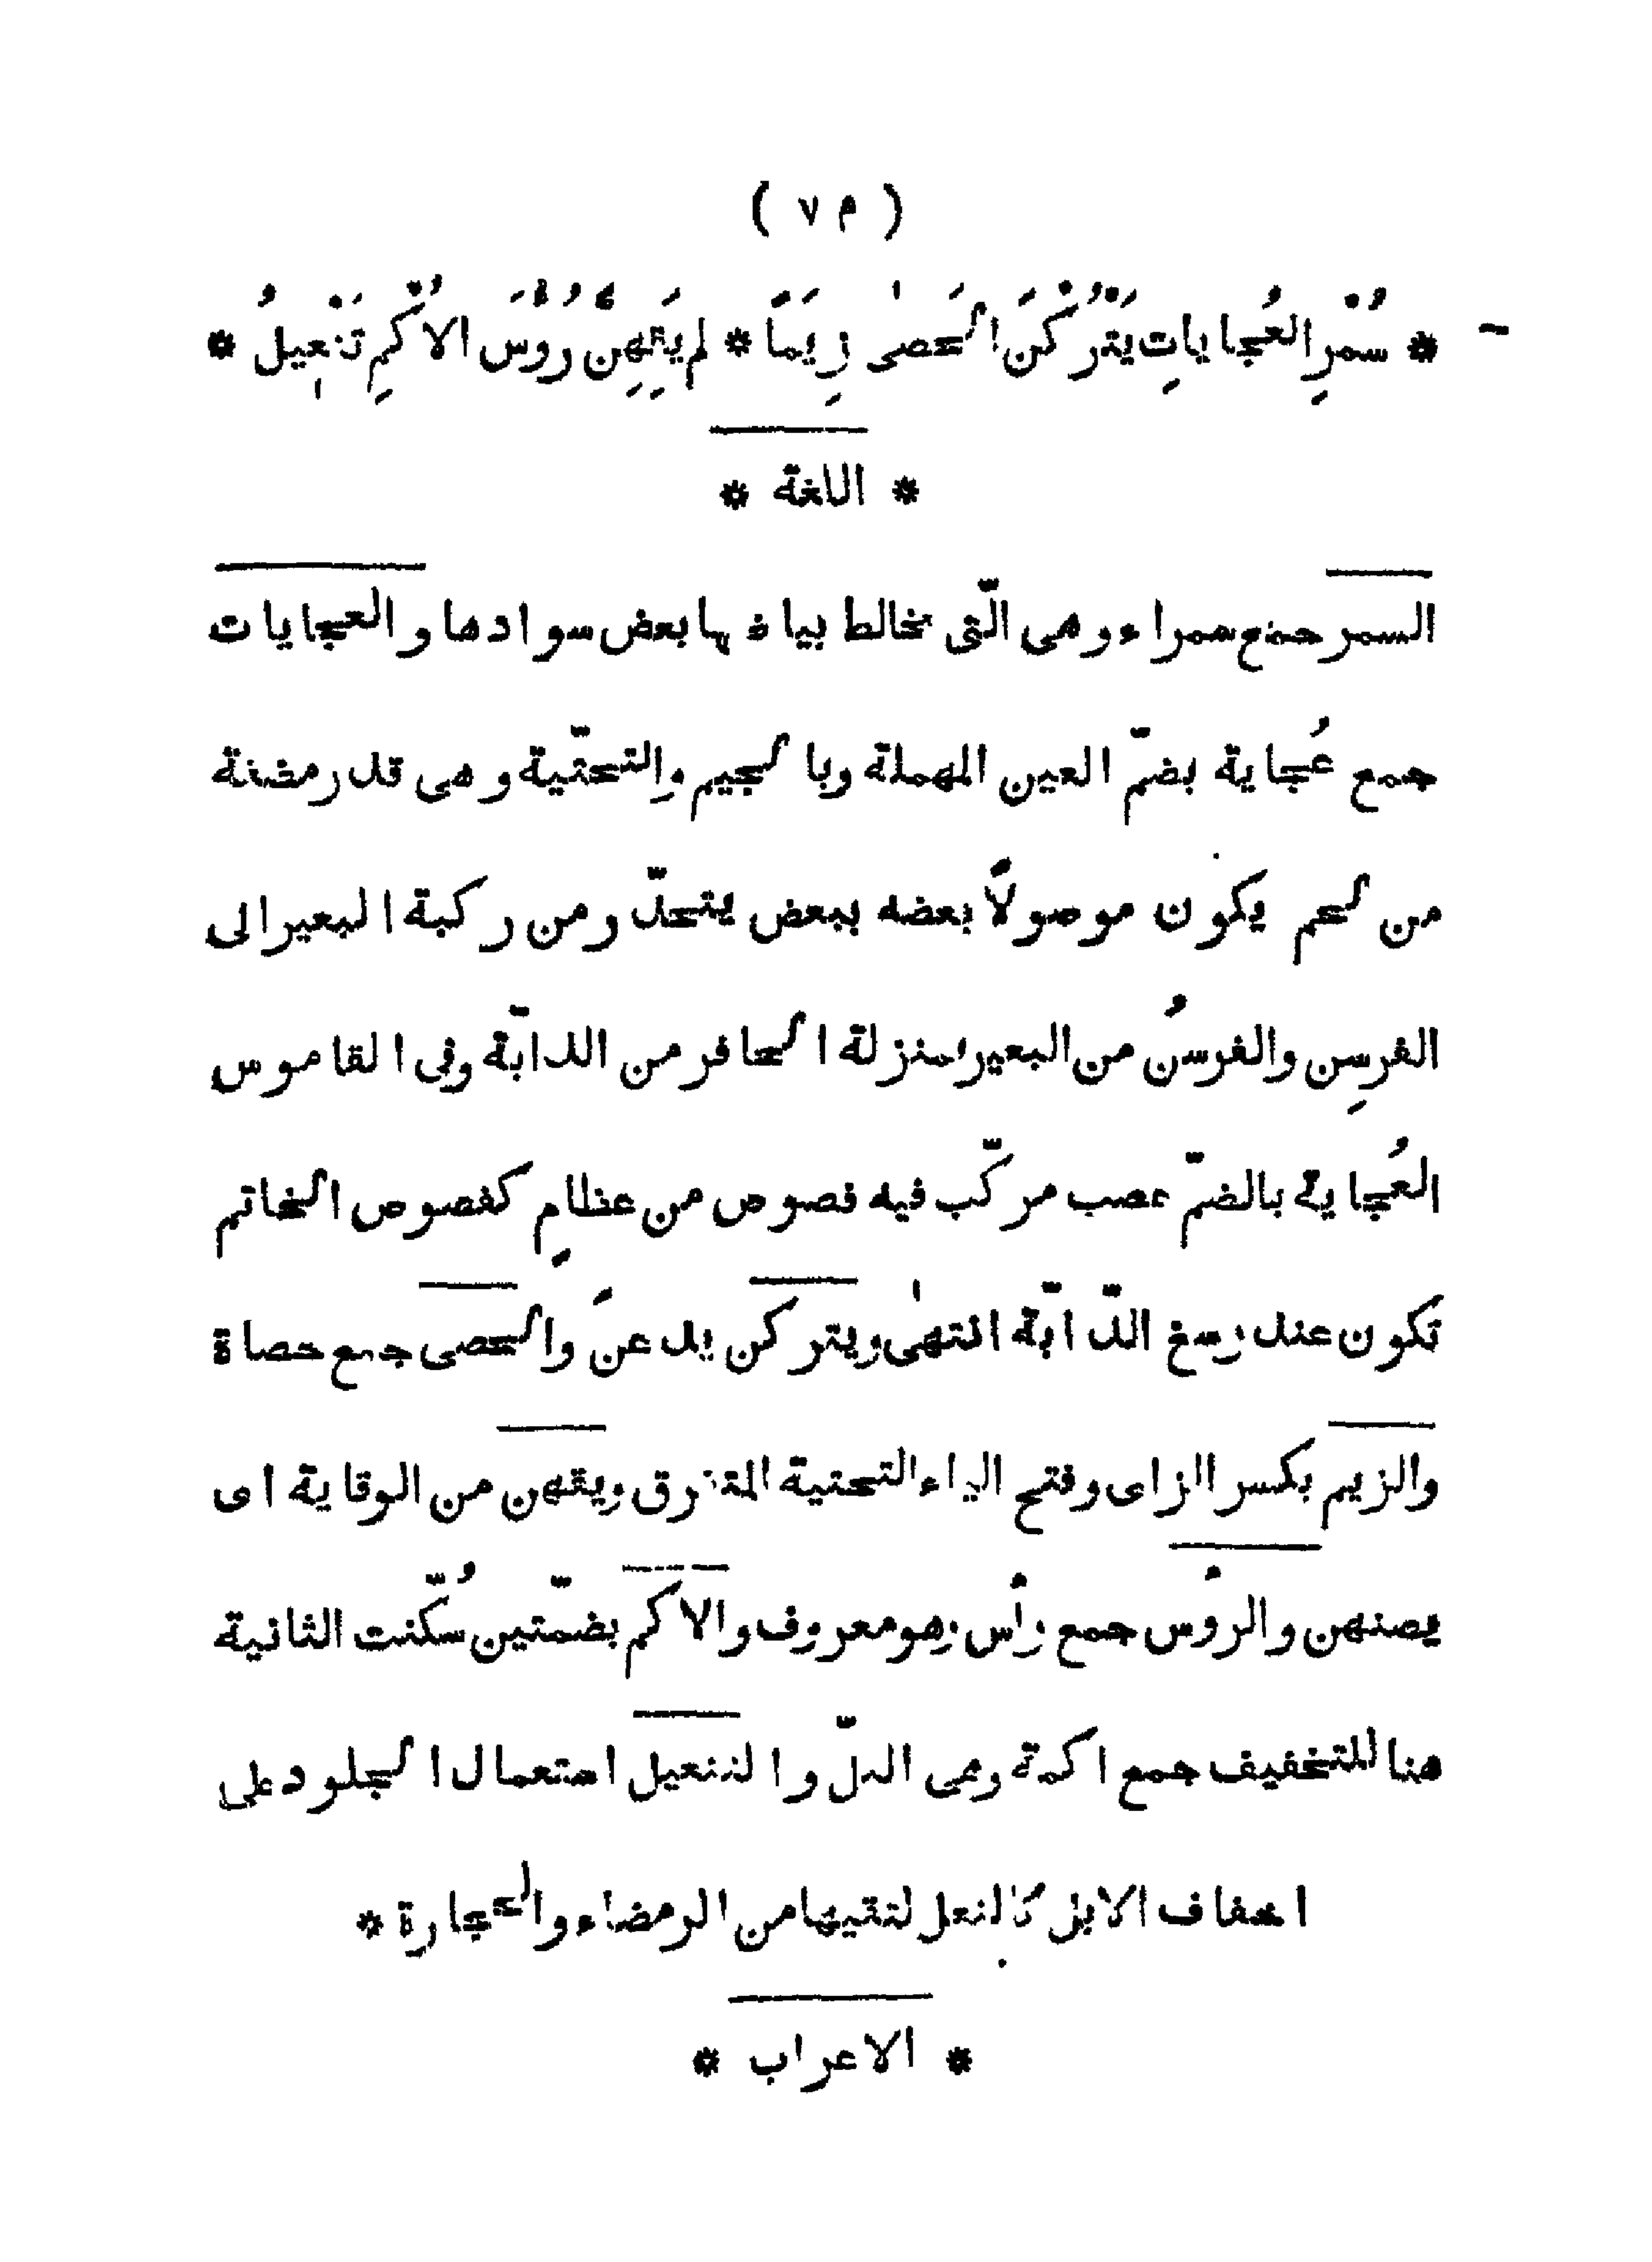 ( ٧ م )
* سُمْرِ العُجايات يَتْرُكْنَ الحَصىٰ زِيَمًا * لم يَقِهِنَّ رُؤُسَ الاُكْمِ تَنْعِيلُ *
* اللغة *
السمر جمع سمراء وهى الّتى خالط بياضها بعض سوادها والعجايات
جمع عُجاية بضمّ العين المهملة وبالجيم والتحتّية وهى قدر مضغة
من لحم يكون موصولاً بعضه ببعض يتحدّر من ركبة البعير الى
الفرسِن والفرسُن من البعير بمنزلة الحافر من الدابّة وفى القاموس
العُجاية بالضمّ عصب مركّب فيه فصوص من عظامٍ كفصوص الخاتم
تكون عند رسغ الدّابّة انتهىٰ ويتركن يدعنَ والحصى جمع حصاة
والزيم بكسر الزاى وفتح الياء التحتية المتفرق ويقهن من الوقاية اى
يصنهن والرؤس جمع رأس وهو معروف والاكم بضمّتين سُكّنت الثانية
هنا للتخفيف جمع اكمة وهى التلّ والتنعيل استعمال الجلود على
اخفاف الابل كالنعل لتقيها من الرمضاء والحجارة *
* الاعراب *